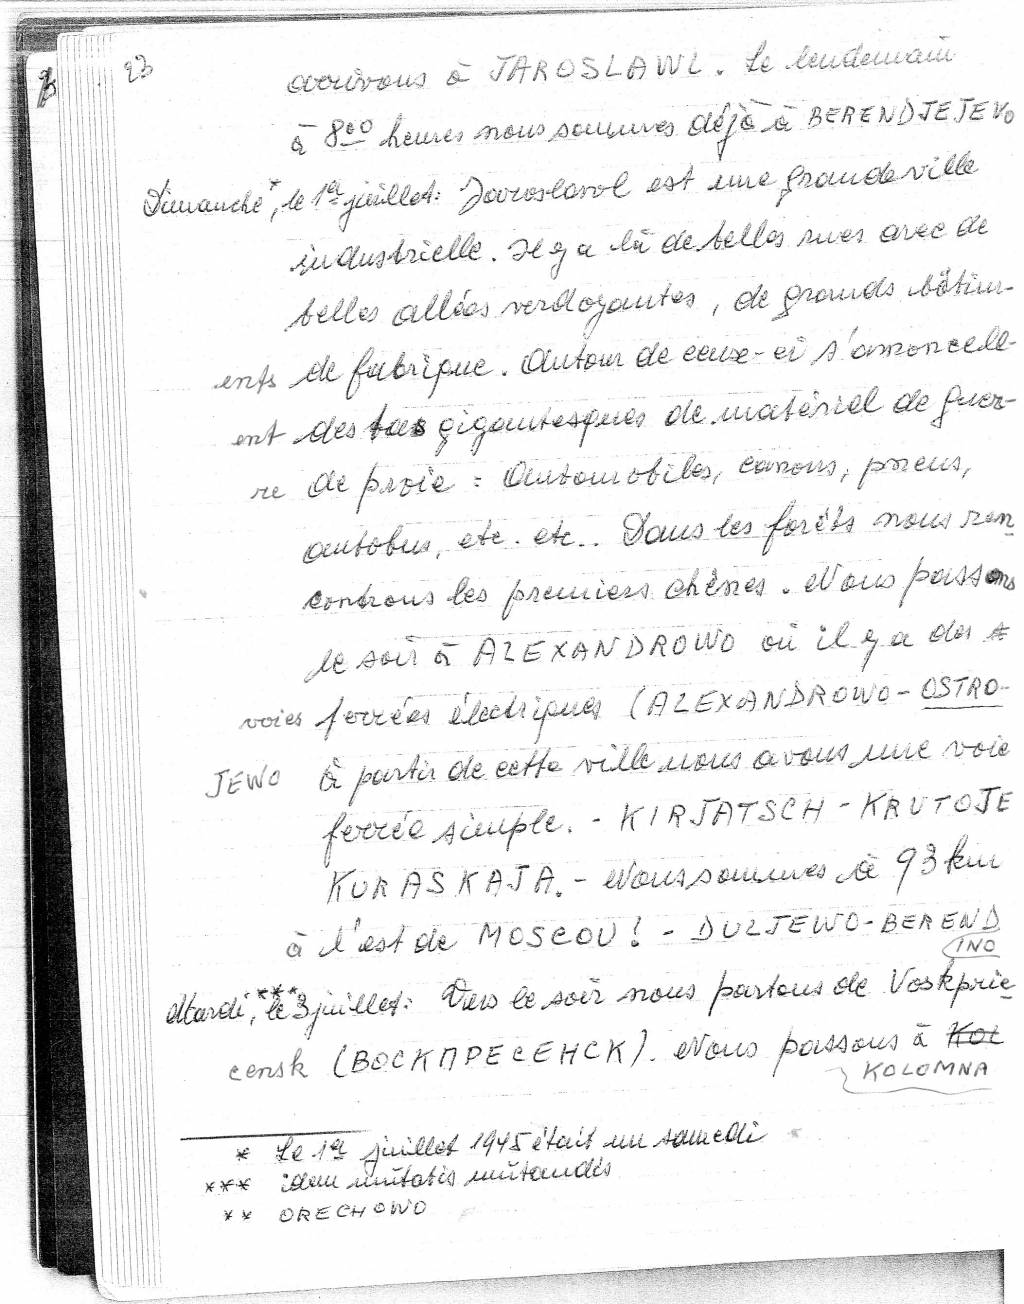 23
arrivons à JAROSLAWL. Le lendemain
à 8⁰⁰ heures nous sommes déjà à BERENDJEJEWO
Dimanche*, le 1er juillet: Jaroslavl est une grande ville
industrielle. Il y a là de belles rues avec de
belles allées verdoyantes, de grands bâtim-
ents de fabrique. Autour de ceux-ci s'amoncell-
ent des tas gigantesques de matériel de guer-
re de proie : Automobiles, canons, pneus,
autobus, etc. etc.. Dans les forêts nous ren-
controns les premiers chênes. Nous passons
le soir à ALEXANDROWO où il y a des
voies ferrées électriques (ALEXANDROWO - OSTRO-
JEWO À partir de cette ville nous avons une voie
ferrée simple. - KIRJATSCH - KRUTOJE
KURASKAJA. - Nous sommes à 93 km
à l'est de MOSCOU! - DULJEWO - BEREND
INO
Mardi***, le 3 juillet: Vers le soir nous partons de Voskprie-
censk (ВОСКПРЕСЕНСК). Nous passons à KOL
KOLOMNA
* Le 1er juillet 1945 était un samedi
*** idem mutatis mutandis
** ORECHOWO